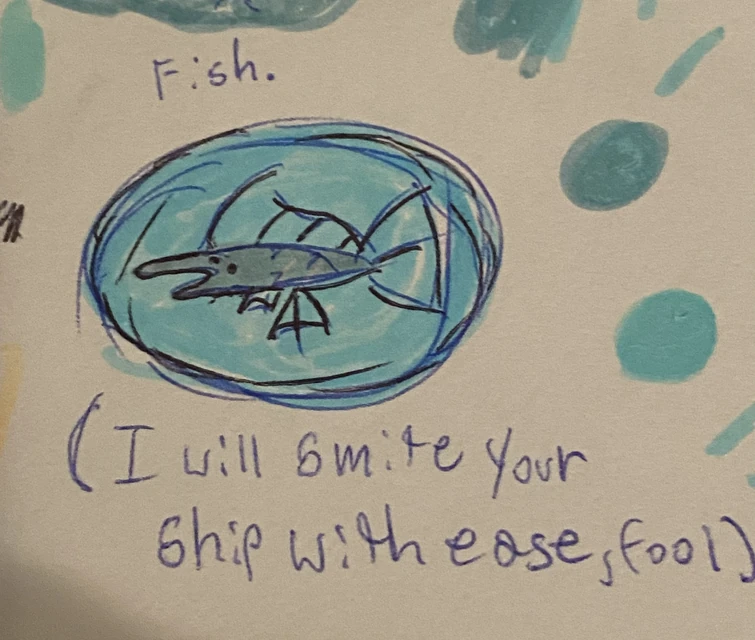 Fish.
(I will smite your
ship with ease, fool)